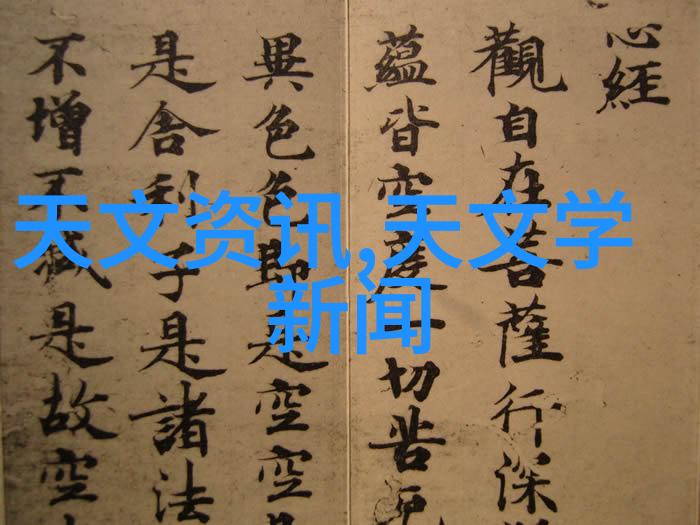 心經
觀自在菩薩行深
蘊皆空度一切苦厄
異色色即是空空
是舍利子是諸法
不增不減是故空
天文资讯,天文学
新闻